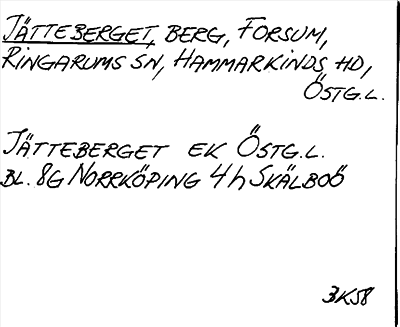 JÄTTEBERGET, BERG, FORSUM,
RINGARUMS SN, HAMMARKINDS HD,
ÖSTG.L.
JÄTTEBERGET EK ÖSTG.L.
BL. 8G NORRKÖPING 4h SKÄLBOÖ
3K58